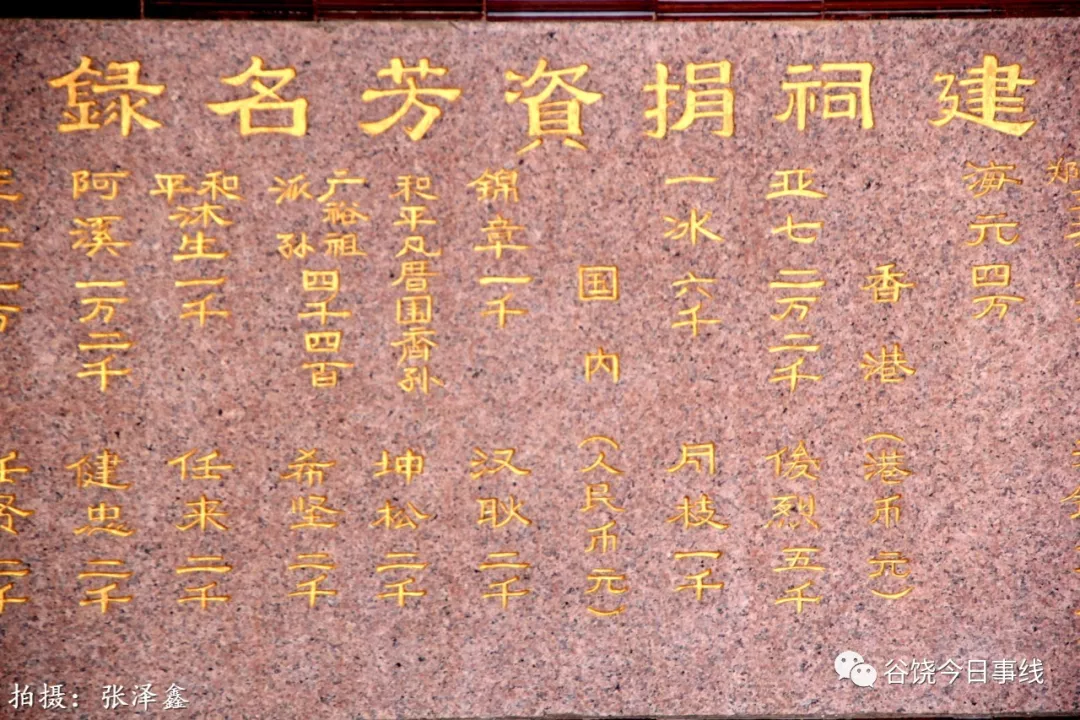 建祠捐資芳名録
海元 四万
香港（港币元）
亚七 二万二千
俊烈 五千
一冰 六千
月枝 一千
国内（人民币元）
錦章 一千
汉耿 二千
和平凡厝围齊孙
坤松 二千
广裕祖派孙 四千四百
希坚 二千
和平沐生 一千
任来 二千
阿溪 一万二千
健忠 二千
任贤 二千
拍摄：张泽鑫
谷饶今日事线